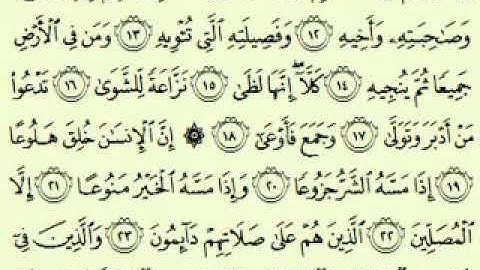 وَصَـٰحِبَتِهِۦ وَأَخِيهِ ١٢ وَفَصِيلَتِهِ ٱلَّتِى تُـْٔوِيهِ ١٣ وَمَن فِى ٱلْأَرْضِ
جَمِيعًا ثُمَّ يُنجِيهِ ١٤ كَلَّآ ۖ إِنَّهَا لَظَىٰ ١٥ نَزَّاعَةً لِّلشَّوَىٰ ١٦ تَدْعُوا۟
مَنْ أَدْبَرَ وَتَوَلَّىٰ ١٧ وَجَمَعَ فَأَوْعَىٰٓ ١٨ ۞ إِنَّ ٱلْإِنسَـٰنَ خُلِقَ هَلُوعًا
١٩ إِذَا مَسَّهُ ٱلشَّرُّ جَزُوعًا ٢٠ وَإِذَا مَسَّهُ ٱلْخَيْرُ مَنُوعًا ٢١ إِلَّا
ٱلْمُصَلِّينَ ٢٢ ٱلَّذِينَ هُمْ عَلَىٰ صَلَاتِهِمْ دَآئِمُونَ ٢٣ وَٱلَّذِينَ فِىٓ